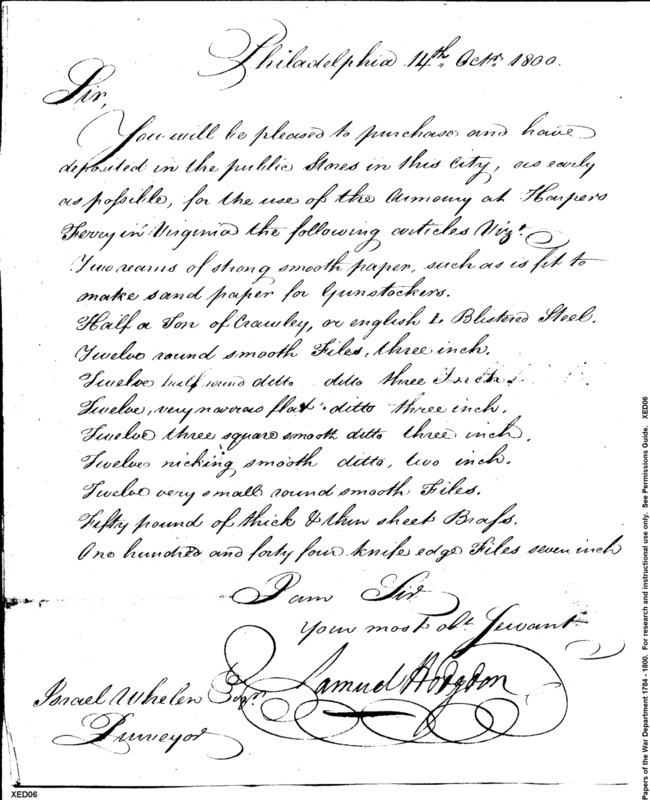 Philadelphia 14th Octr. 1800.
Sir,
You will be pleased to purchase and have
deposited in the public Stores in this City, as early
as possible, for the use of the Armoury at Harpers
Ferry in Virginia the following articles Vizt.
Two reams of strong smooth paper, such as is fit to
make sand paper for Gunstockers.
Half a Ton of Crawley, or english L Blistered Steel.
Twelve round smooth Files, three inch.
Twelve half round ditto ditto three Inch.
Twelve, very narrow flat ditto three inch.
Twelve three square smooth ditto three inch.
Twelve nicking smooth ditto, two inch.
Twelve very small round smooth Files.
Fifty pound of thick & thin sheet Brass.
One hundred and forty four knife edge Files seven inch
I am Sir
Your most obt. Servant
Samuel Hodgdon
Israel Whelen Esqr.
Purveyor
XED06
Papers of the War Department 1784 - 1800. For research and instructional use only. See Permissions Guide. XED06